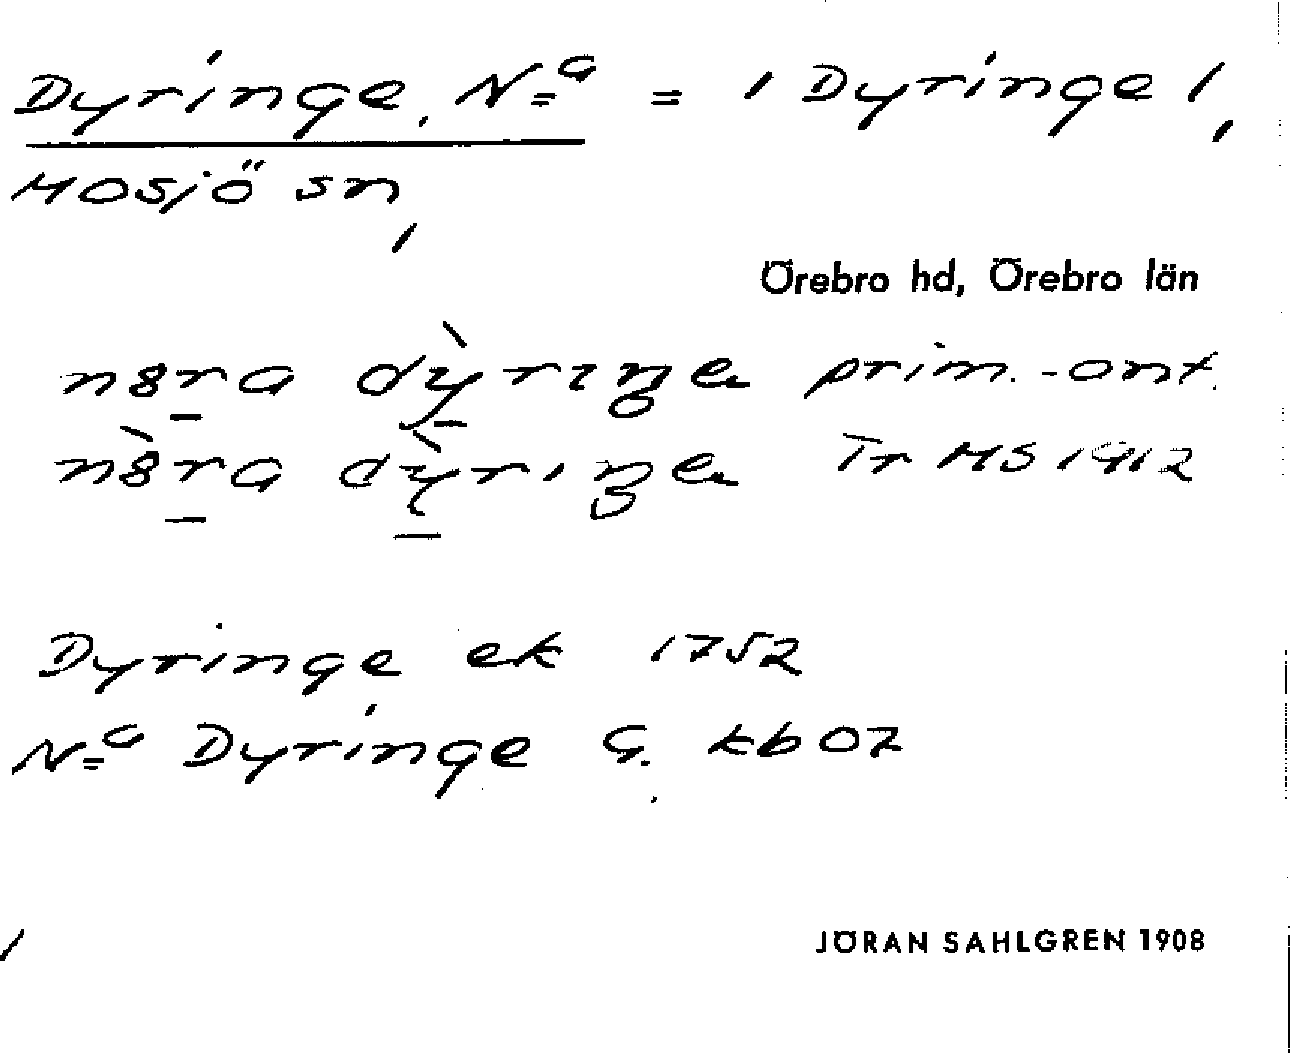 Dyringe, N=a = 1 Dyringe 1,
Mosjö sn,
Örebro hd, Örebro län
prim.-ont.
Tr MS 1912
Dyringe ek 1752
N=a Dyringe G. kb 07
JÖRAN SAHLGREN 1908